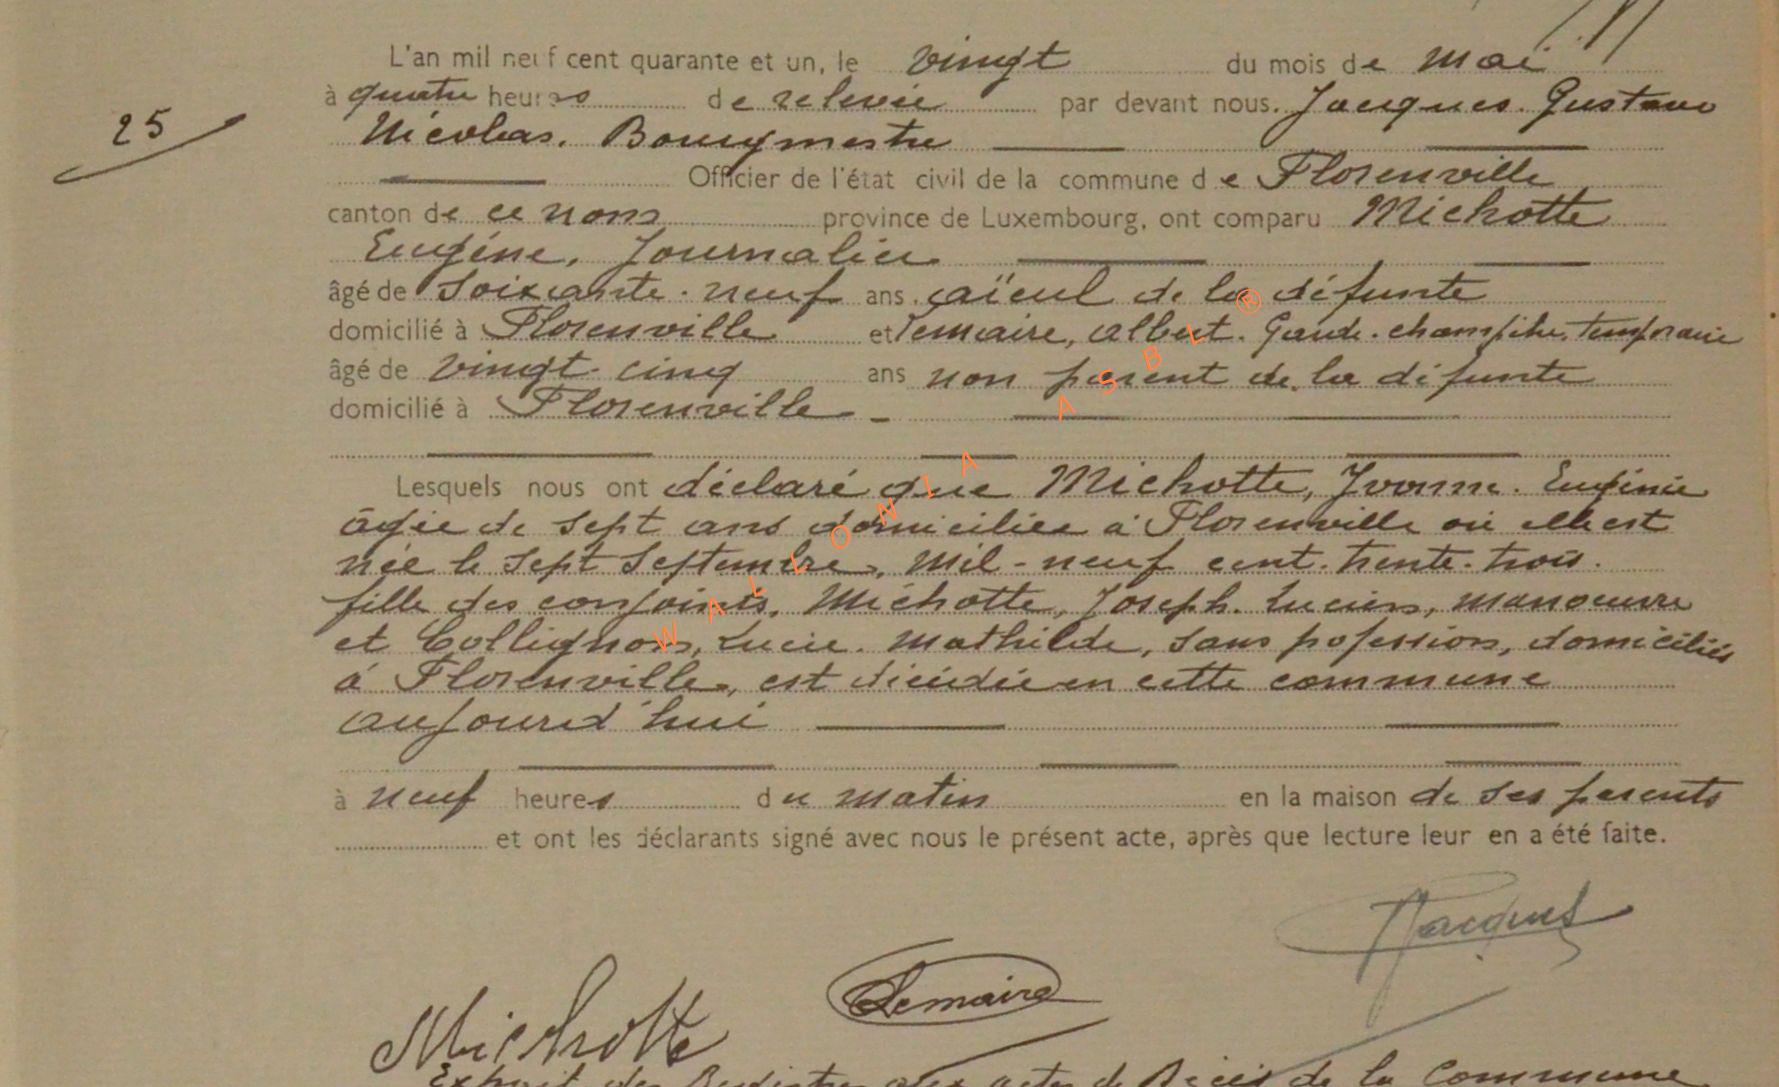 L'an mil neuf cent quarante et un, le vingt du mois de mai
à quatre heures de relevée par devant nous. Jacques. Gustave
25
Nicolas. Bourgmestre
Officier de l'état civil de la commune de Florenville
canton de ce nom province de Luxembourg, ont comparu Michotte
Eugène, Journalier
âgé de Soixante-neuf ans. aïeul de la défunte
domicilié à Florenville et Lemaire, Albert. Garde-champêtre temporaire
âgé de vingt-cinq ans non parent de la défunte
domicilié à Florenville
Lesquels nous ont déclaré que Michotte, Yvonne. Eugénie
âgée de sept ans domiciliée à Florenville où elle est
née le sept Septembre, mil-neuf cent-trente-trois.
fille des conjoints, Michotte, Joseph. Lucien, manoeuvre
et Collignon, Lucie. Mathilde, sans pofession, domiciliés
à Florenville, est décédée en cette commune
aujourd'hui
à neuf heures du matin en la maison de ses parents
et ont les déclarants signé avec nous le présent acte, après que lecture leur en a été faite.
Jacques
Lemaire
Michotte
Extrait du Registre aux actes de Décès de la Commune
WALLONIA ASBL ®